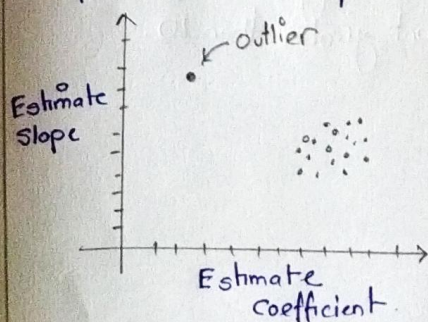 outlier
Estimate
Slope
Estimate
Coefficient